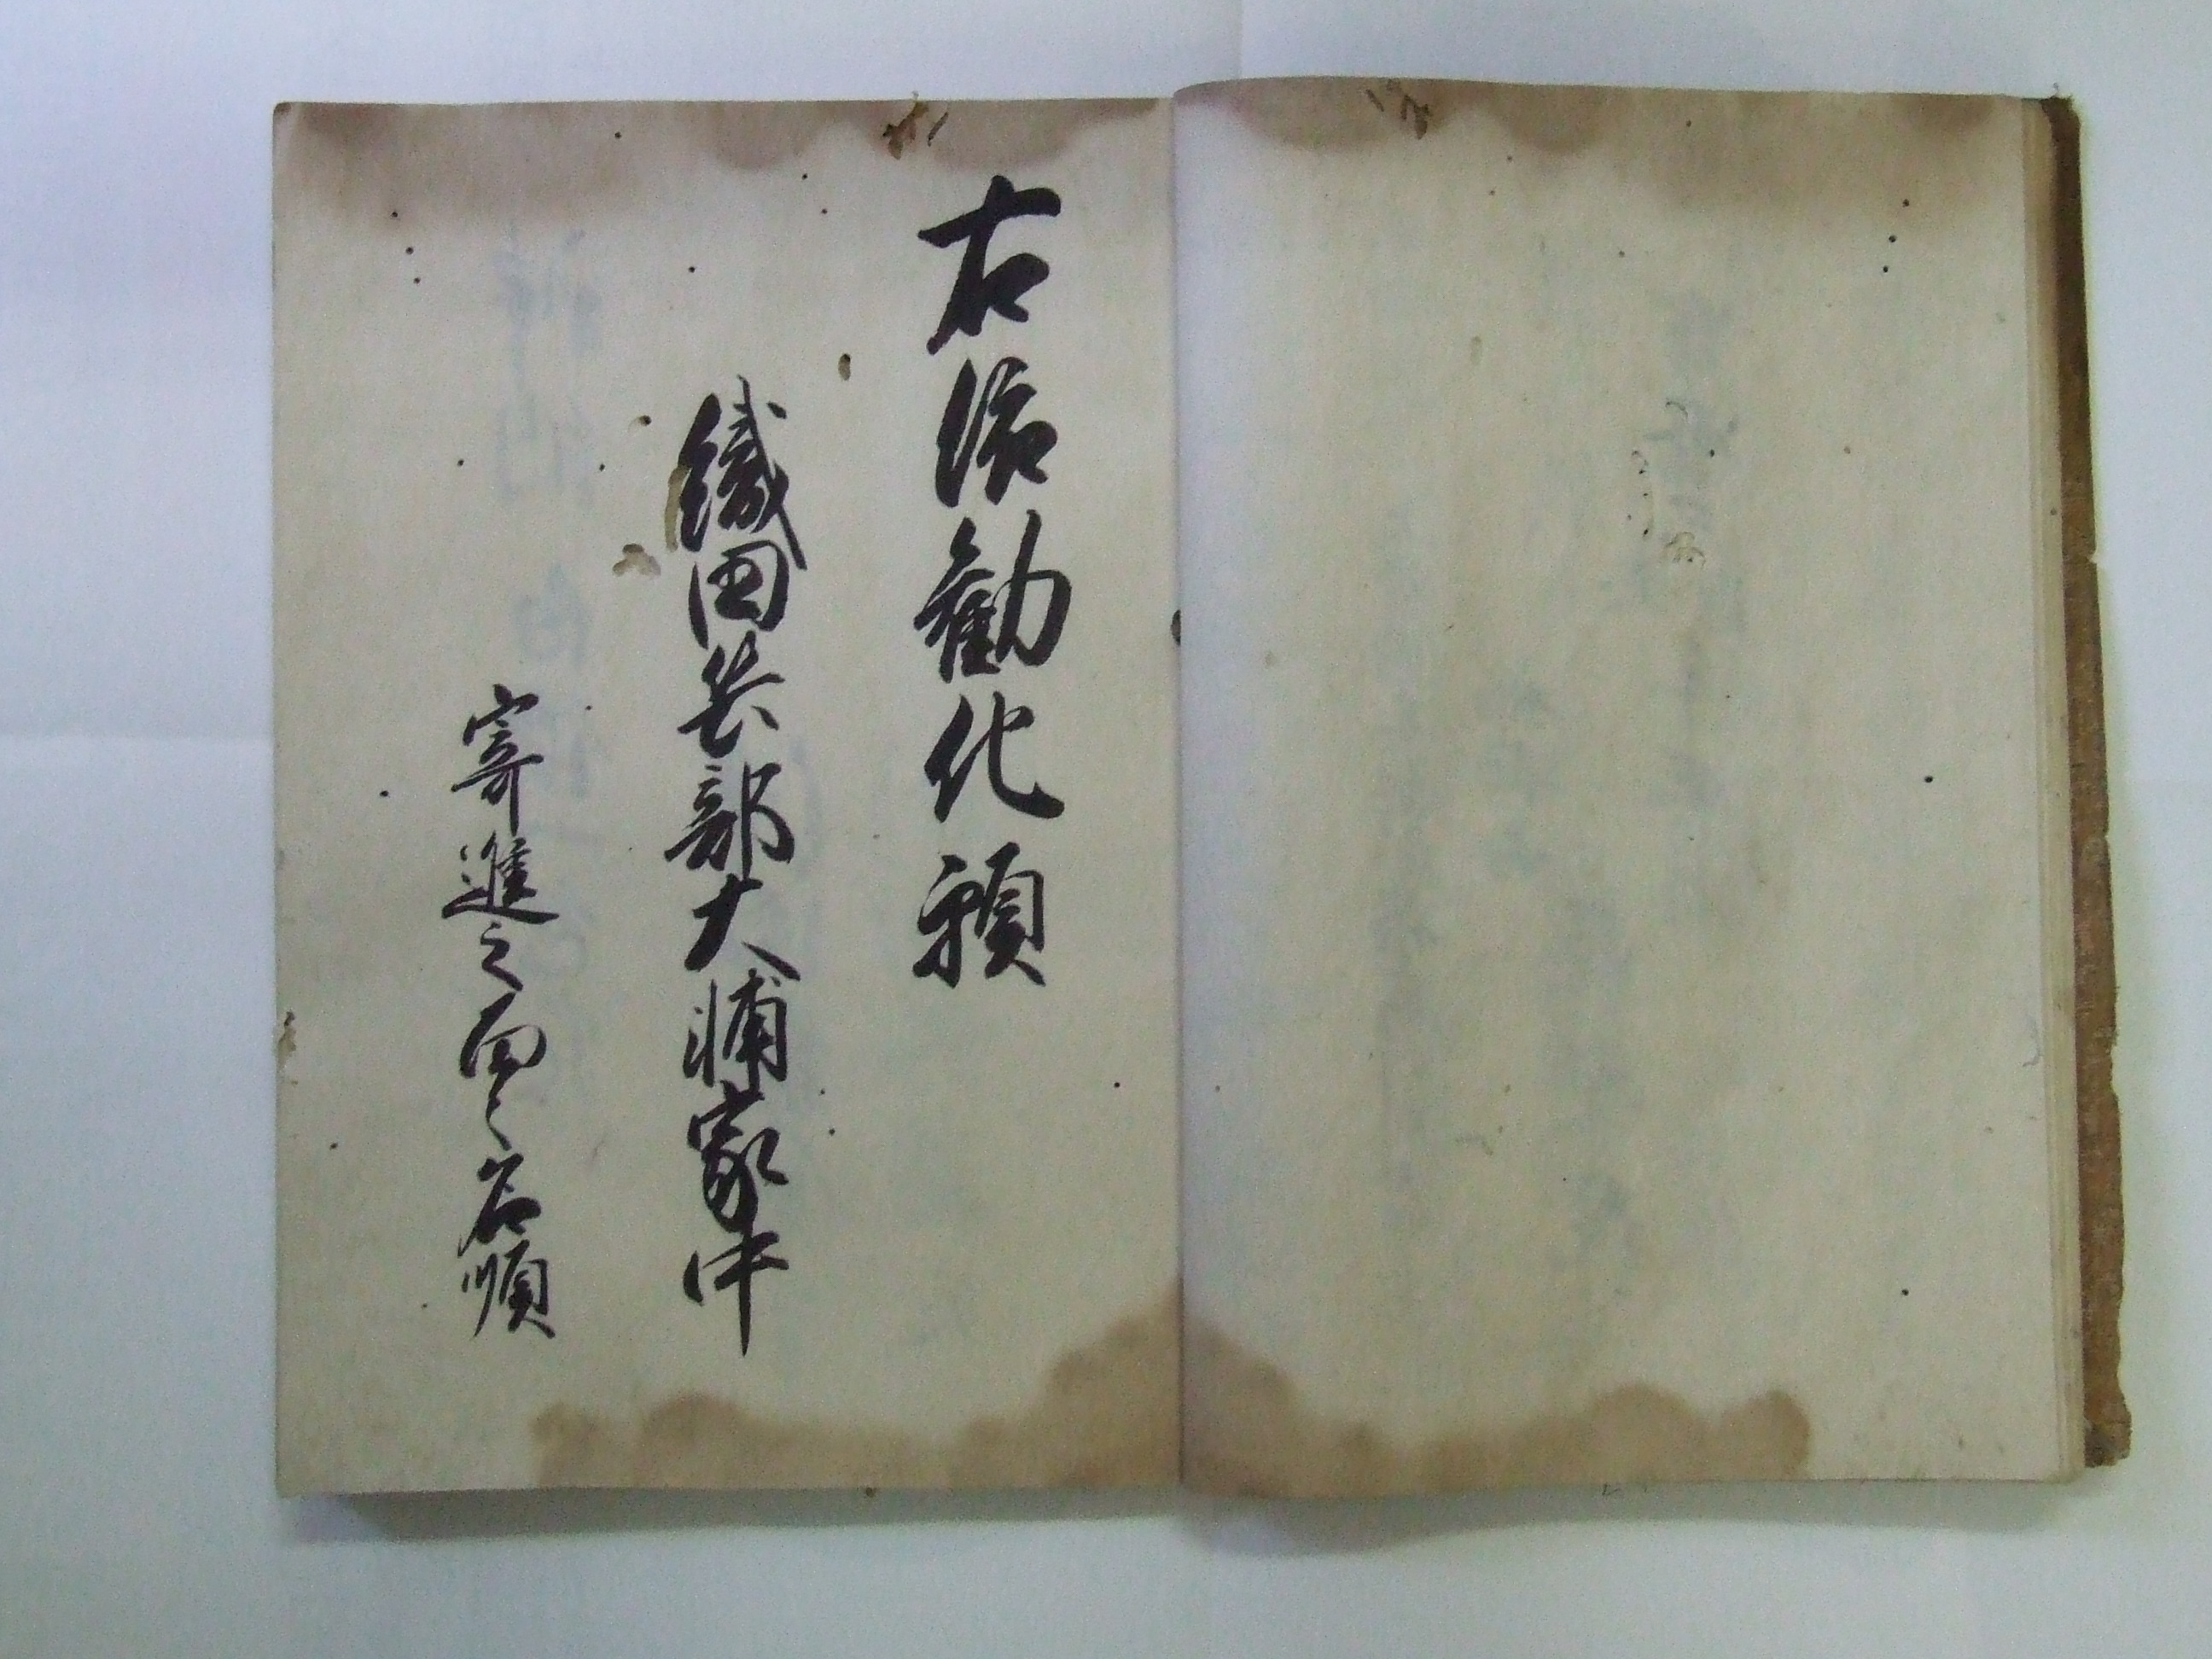 右依勧化願
織田兵部大輔家中
寄進之面々名順